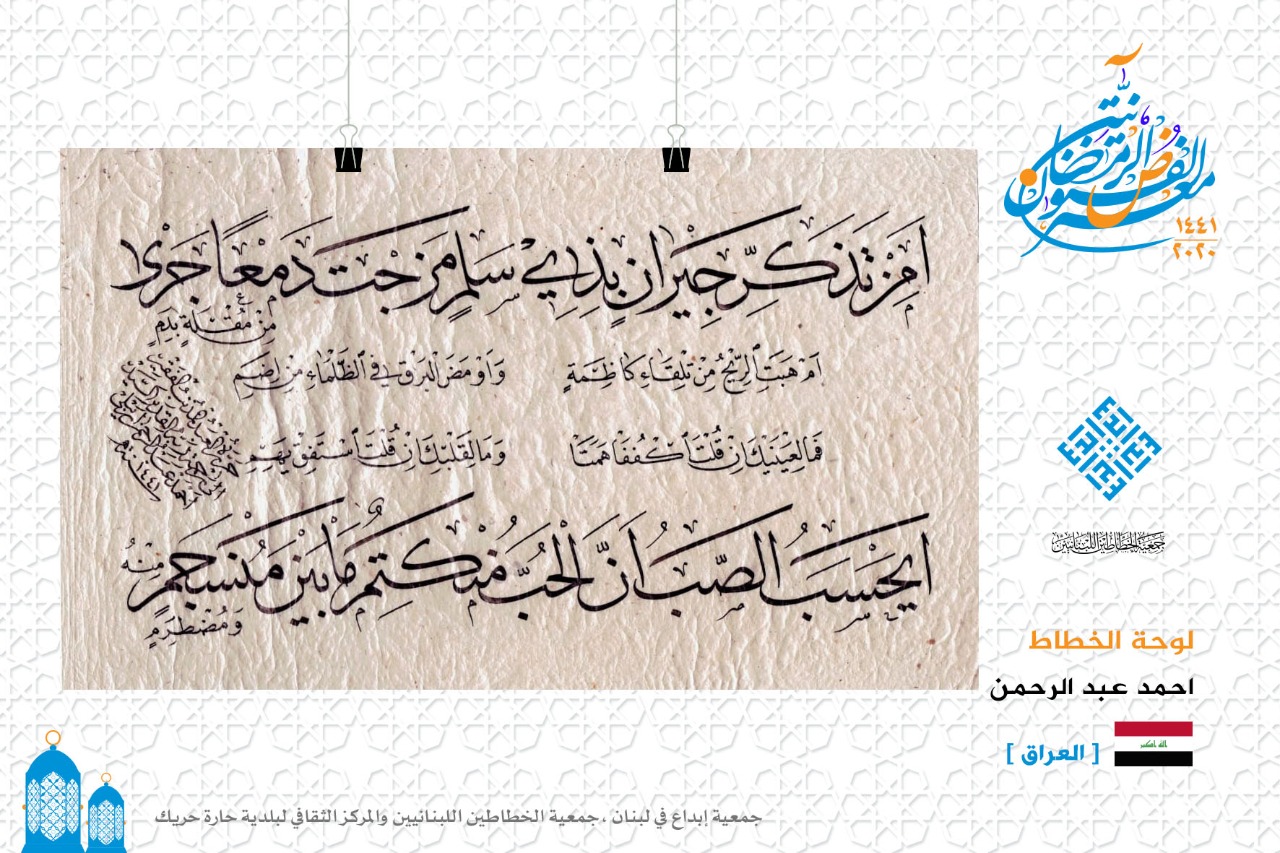 معرض الفنون الرمضانية
١٤٤١
٢٠٢٠
أمن تذكر جيران بذي سلم مزجت دمعا جرى
من مقلة بدم
أم هبت الريح من تلقاء كاظمة وأومض البرق في الظلماء من إضم
فما لعينيك إن قلت اكففا همتا وما لقلبك إن قلت استفق يهم
أيحسب الصب أن الحب منكتم ما بين منسجم منه
ومضطرم
١٤٤١
جمعية الخطاطين اللبنانيين
لوحة الخطاط
احمد عبد الرحمن
[ العراق ]
الله اكبر
جمعية إبداع في لبنان ، جمعية الخطاطين اللبنانيين والمركز الثقافي لبلدية حارة حريك